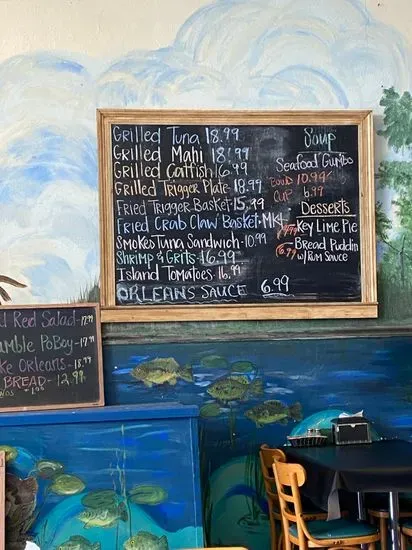 Grilled Tuna 18.99
Grilled Mahi 18.99
Grilled Catfish 16.99
Grilled Trigger Plate-18.99
Fried Trigger Basket-15.99
Fried Crab Claw Basket-MKt
Smoked Tuna Sandwich-10.99
Shrimp & Grits-16.99
Island Tomatoes-16.99
ORLEANS SAUCE 6.99
Soup
Seafood Gumbo
Bowl 10.99
Cup 6.99
Desserts
Key Lime Pie
6.99 Bread Puddin
w/Rum Sauce
d Reid Salad-17.99
umble PoBoy-17.99
ke Orleans-18.99
BREAD-12.99